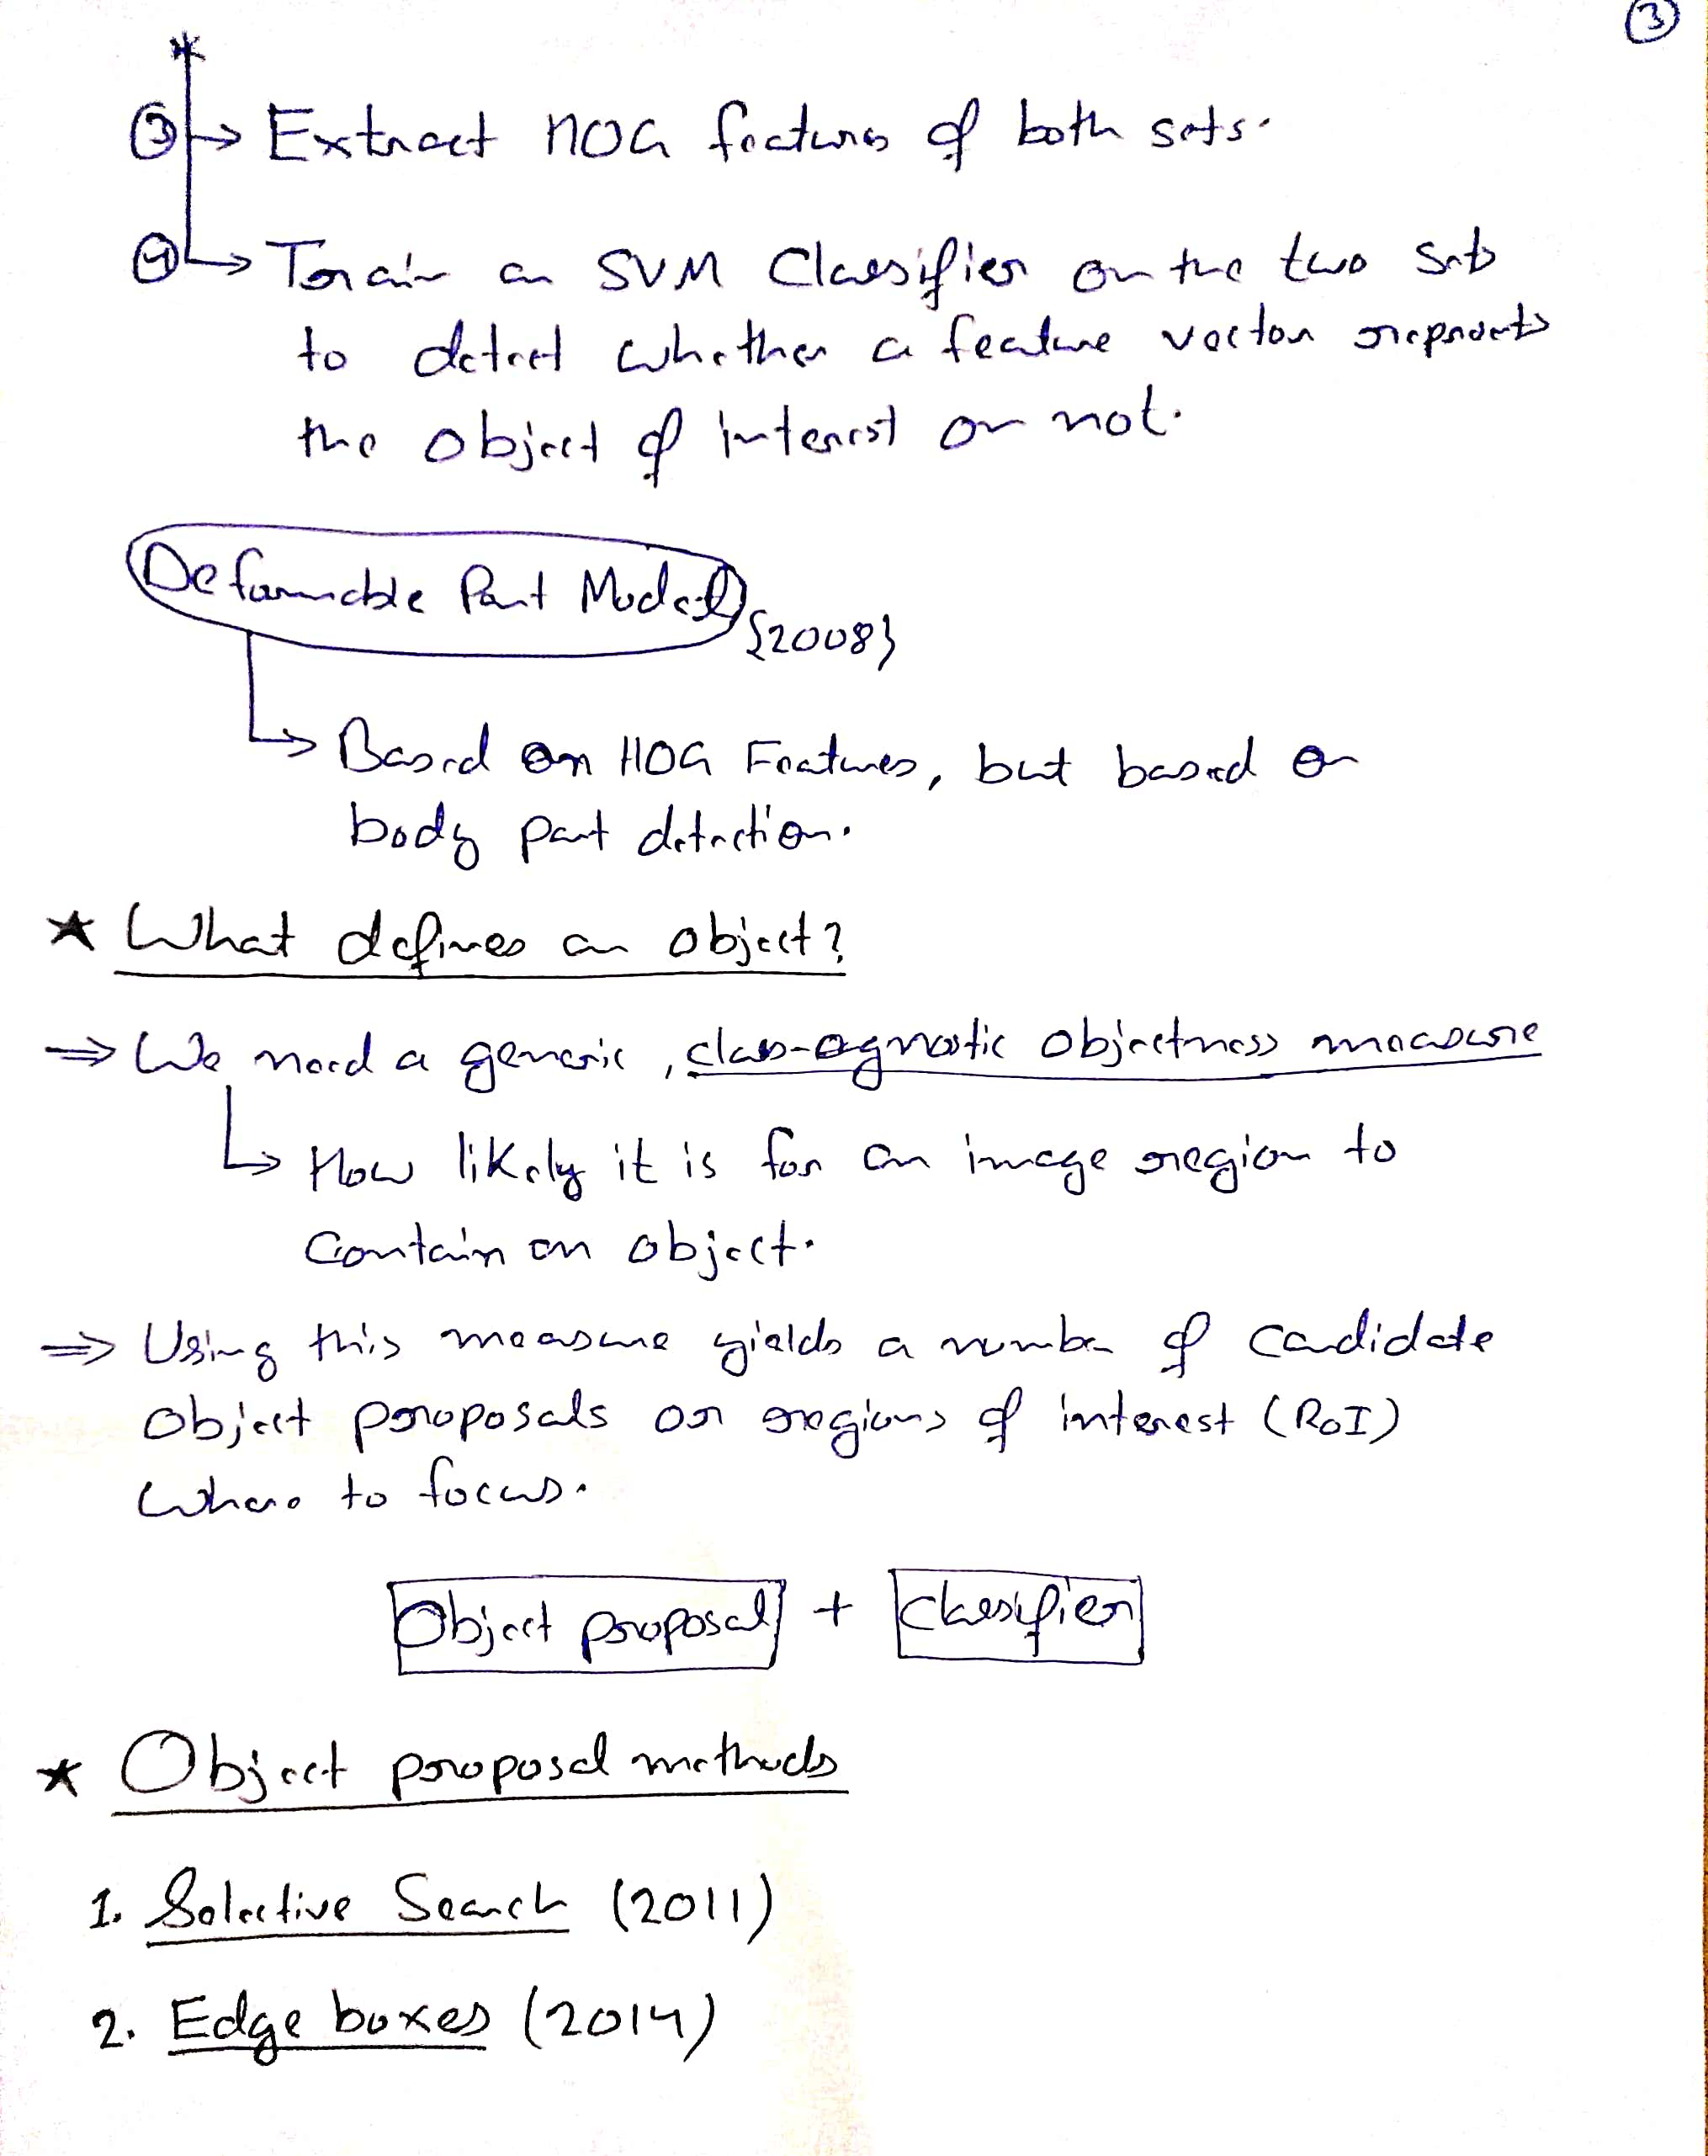 3
*
③ → Extract HOG features of both sets.
④ → Train an SVM Classifier on the two sets
to detect whether a feature vector represents
the object of interest or not.
Deformable Part Model {2008}
↳ Based on HOG Features, but based on
body part detection.
★ What defines an object?
⇒ We need a generic, class-agnostic objectness measure
↳ How likely it is for an image region to
contain an object.
⇒ Using this measure yields a number of candidate
object proposals or regions of interest (RoI)
where to focus.
Object proposal + Classifier
★ Object proposal methods
1. Selective Search (2011)
2. Edge boxes (2014)